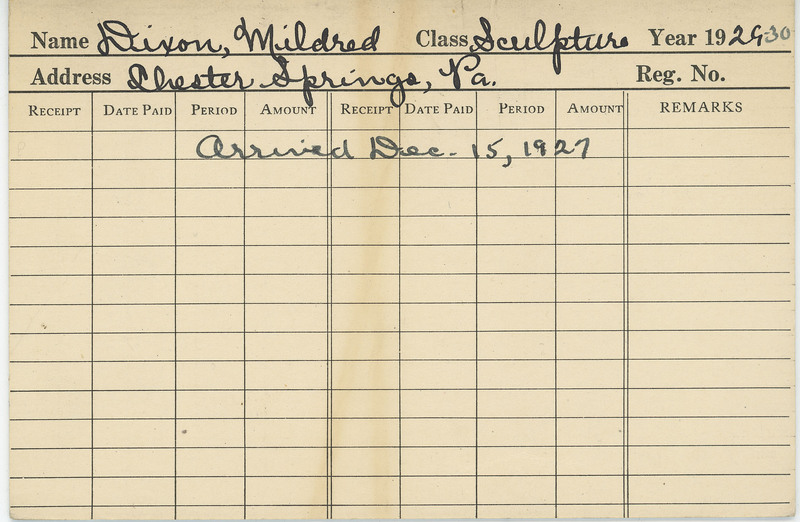 Name Dixon, Mildred Class Sculpture Year 1929-30
Address Chester Springs, Pa. Reg. No.
RECEIPT DATE PAID PERIOD AMOUNT RECEIPT DATE PAID PERIOD AMOUNT REMARKS
Arrived Dec. 15, 1927